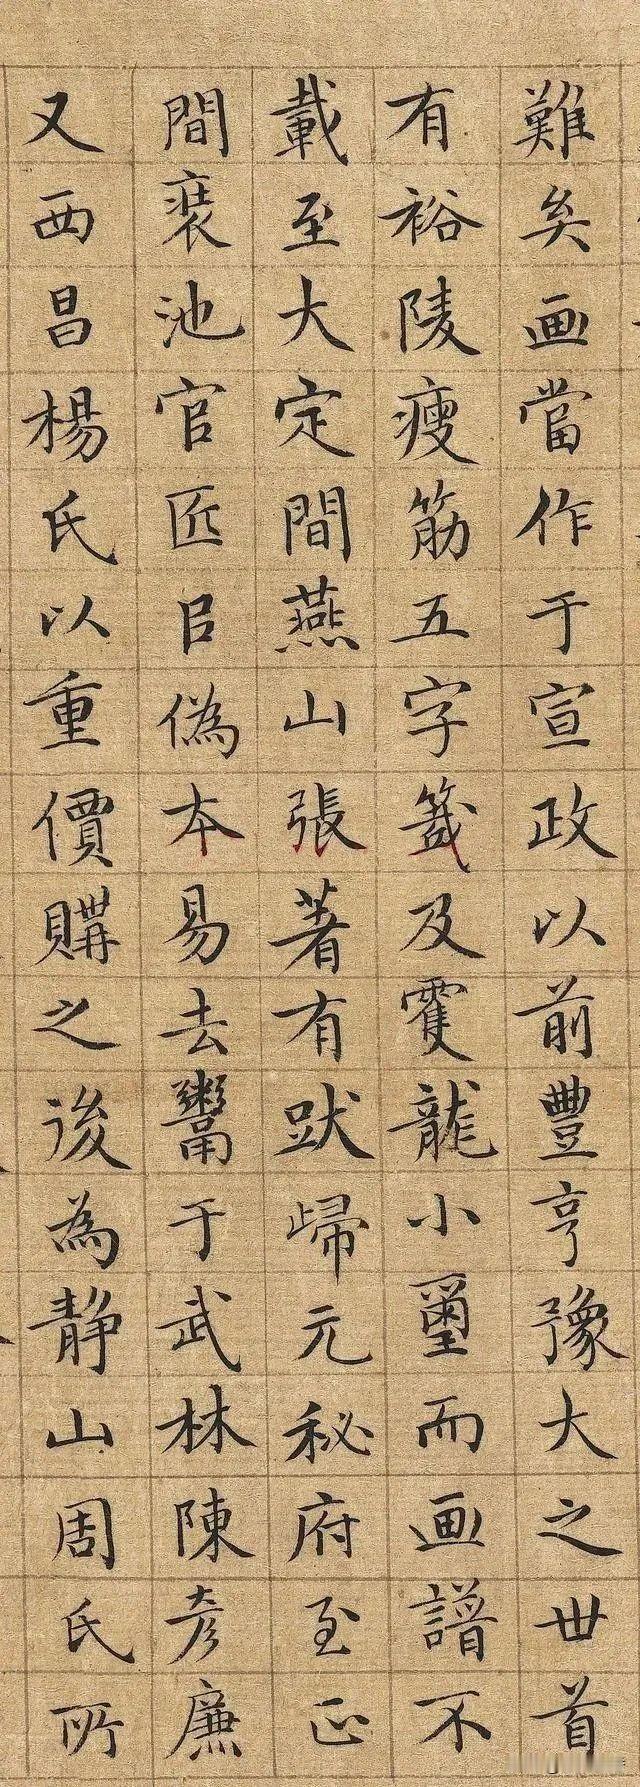 難矣画當作于宣政以前豐亨豫大之世首
有裕陵瘦筋五字籖及䨇龍小璽而画譜不
載至大定間燕山張著有跋歸元秘府至正
間裝池官匠㠯偽本易去鬻于武林陳彦廉
又西昌楊氏以重價購之後為静山周氏所